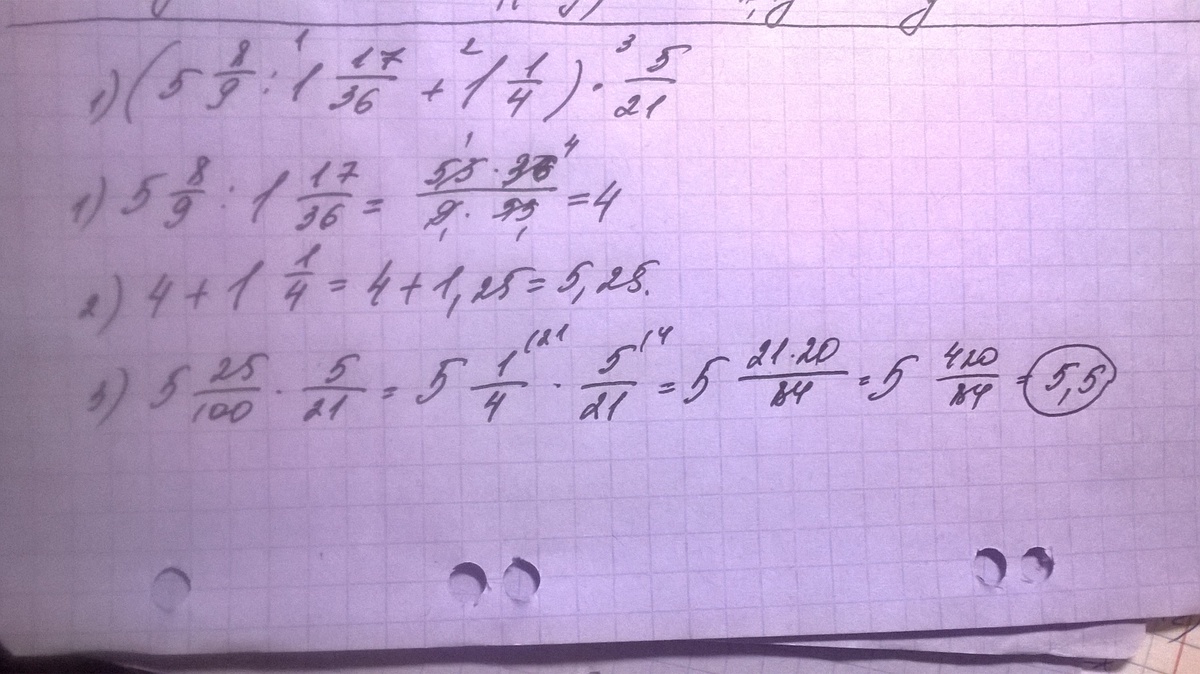 1) (5 8/9 : 1 17/36 + 1 1/4) · 5/21
1) 5 8/9 : 1 17/36 = 53 · 36 / 9 · 53 = 4
2) 4 + 1 1/4 = 4 + 1,25 = 5,25.
3) 5 25/100 · 5/21 = 5 1/4 · 5/21 = 5 21·20/84 = 5 420/84 = 5,5